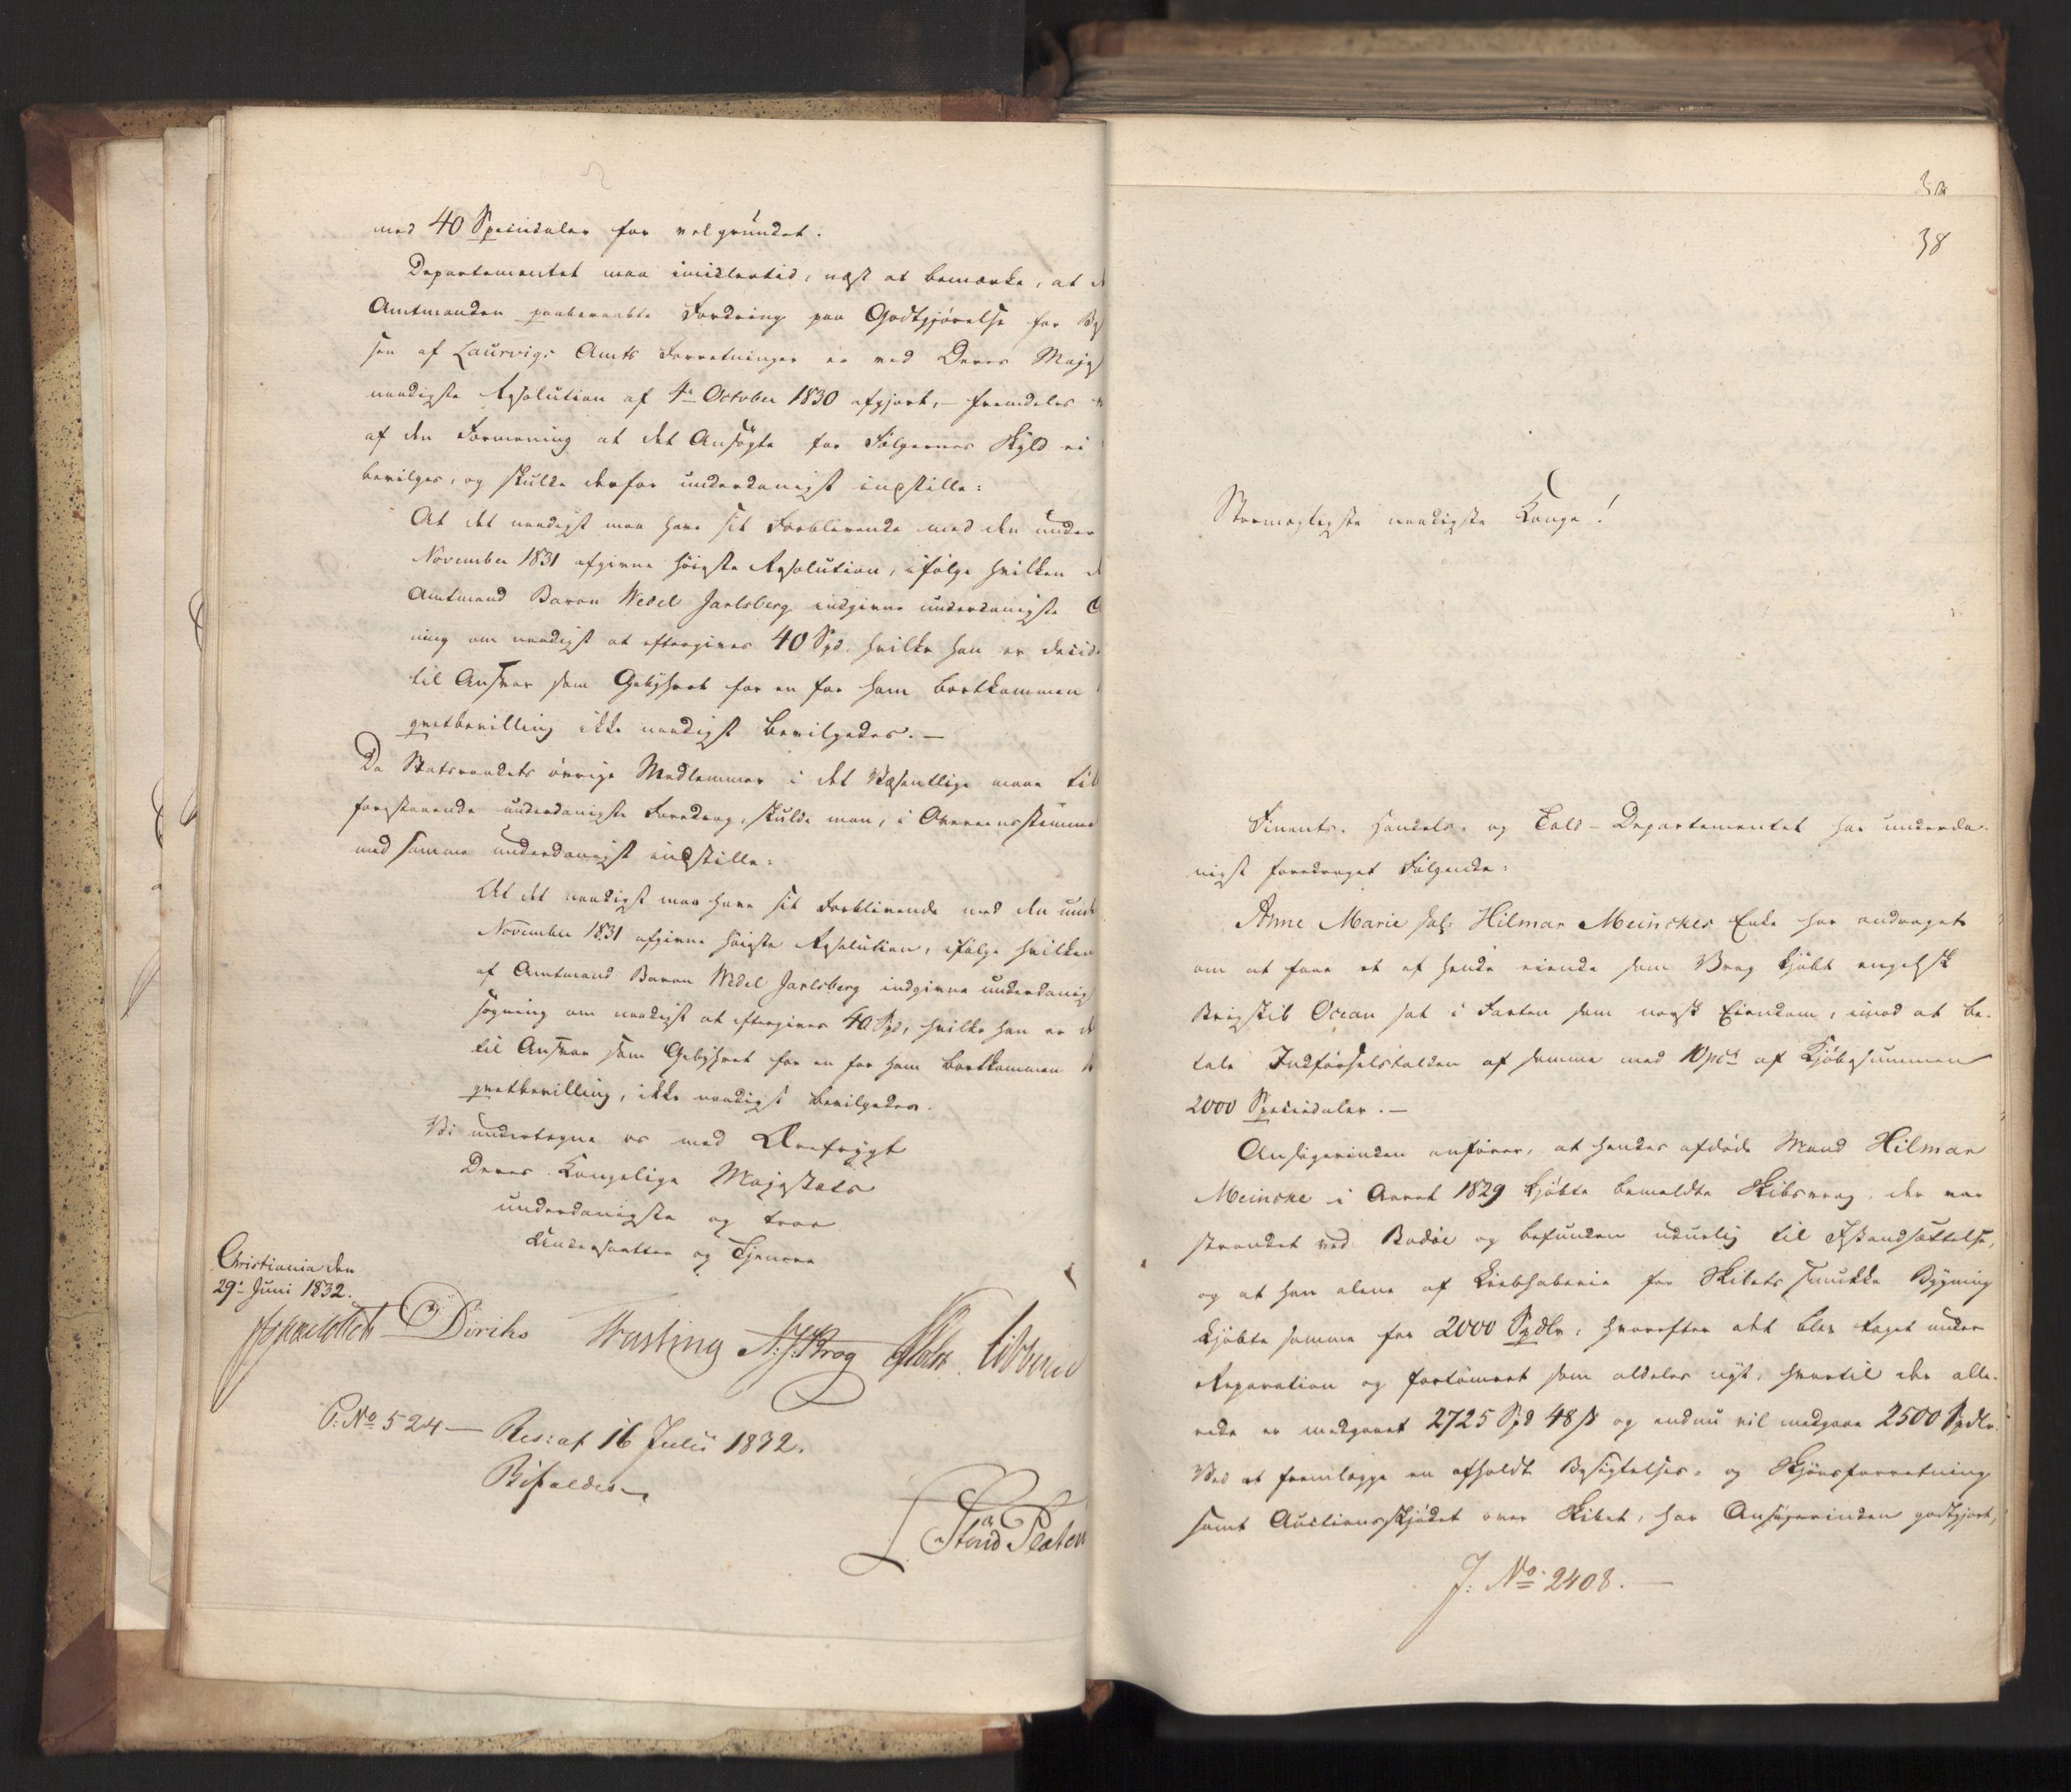 med 40 Speciedaler for velgrundet.
Departementet maa imidlertid, næst at bemærke, at d
Amtmanden paaberaabte Fordring paa Godtgjørelse for Be
sen af Laurvigs Amts Forretninger er ved Deres Maje
naadigste Resolution af 4de October 1830 afgjort, – fremdeles
af den Formening at det Ansøgte for Følgernes Skyld ei
bevilges, og skulde derfor underdanigst indstille:
At det naadigst maa have sit Forblivende med den under
November 1831 afgivne høieste Resolution, ifølge hvilken d
Amtmand Baron Wedel Jarlsberg indgivne underdanigste
ning om naadigst at eftergives 40 Spd. hvilke han er decid
til Ansvar som Gebyhret for en for ham bortkommen
gretbevilling ikke naadigst bevilgedes. –
Da Statsraadets øvrige Medlemmer i det Væsentlige maae til
forestaaende underdanigste Foredrag, skulde man, i Overeensstemme
med samme underdanigst indstille:
At det naadigst maa have sit Forblivende med den unde
November 1831 afgivne høieste Resolution, ifølge hvilken
af Amtmand Baron Wedel Jarlsberg indgivne underdanig
søgning om naadigst at eftergives 40 Spd, hvilke han er d
til Ansvar som Gebyhret for en for ham bortkommen
gretbevilling, ikke naadigst bevilgedes.
Vi undertegne os med Ærefrygt
Deres Kongelige Majestæts
underdanigste og troe
Undersaatter og Tjenere
Christiania den
29de Juni 1832.
Diriks Krog
P: No 524 – Res: af 16 Julii 1832.
Bifaldes
Platen
38
Stormægtigste naadigste Konge!
Finants- Handels- og Told-Departementet har underda-
nigst foredraget Følgende:
Anne Marie sal: Hilmar Meinckes Enke har andraget
om at faae et af hende eiende som Vrag kjøbt engelsk
Brigskib Ocean sat i Farten som norsk Eiendom, imod at be-
tale Indførselstolden af samme med 10 pCt af Kjøbesummen
2000 Speciedaler. –
Ansøgerinden anfører, at hendes afdøde Mand Hilmar
Meincke i Aaret 1829 kjøbte bemeldte Skibsvrag, der var
strandet ved Bodøe og befunden uduelig til Istandsættelse,
og at han alene af Liebhaberie for Skibets smukke Bygning
kjøbte samme for 2000 Spdlr, hvorefter det blev taget under
Reparation og fortømret som aldeles nyt, hvortil der alle-
rede er medgaaet 2725 Spd 48 s og endnu vil medgaae 2500 Spdlr.
Ved at fremlægge en afholdt Besigtelses- og Skjønsforretning
samt Auctionsskjødet over Skibet, har Ansøgerinden godtgjort,
J: No 2408. –